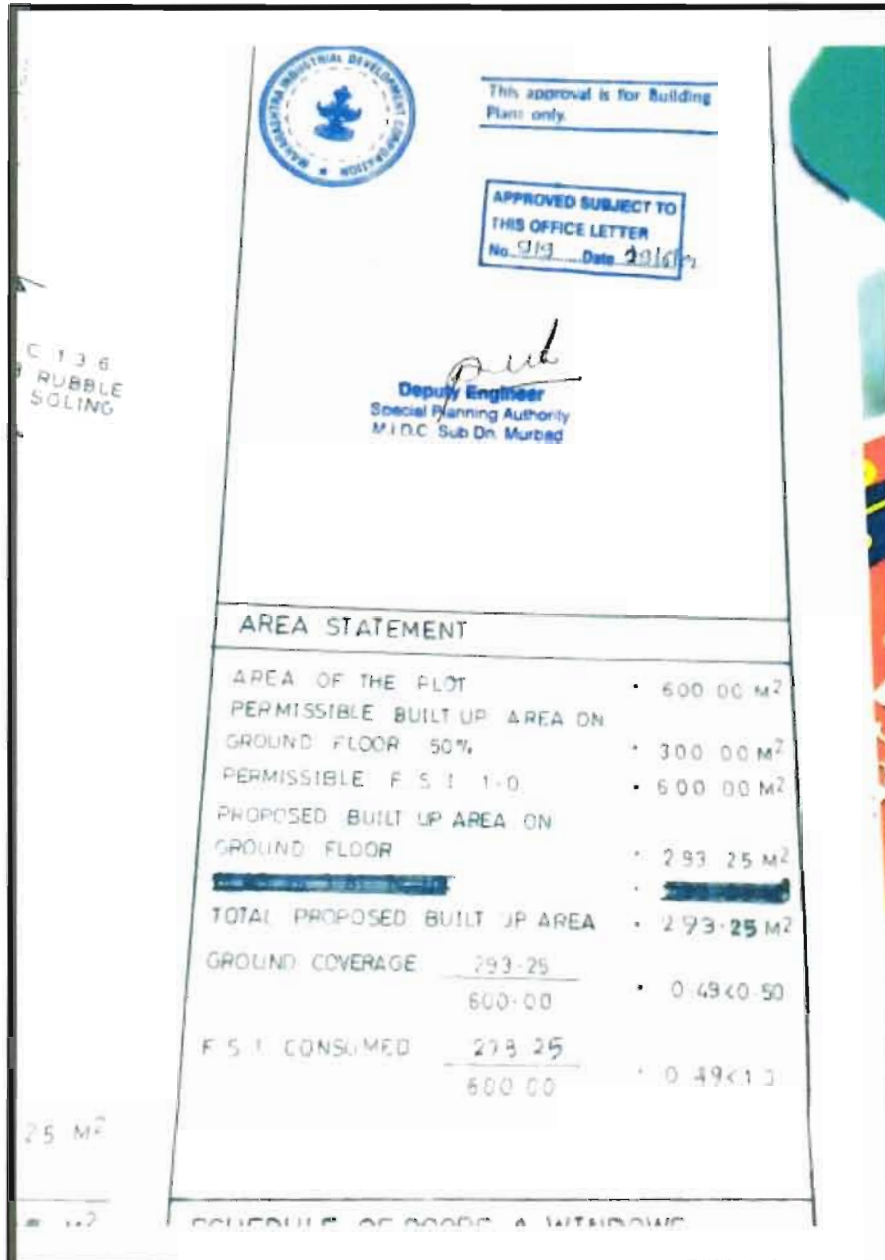 MAHARASHTRA INDUSTRIAL DEVELOPMENT CORPORATION
This approval is for Building
Plans only.
APPROVED SUBJECT TO
THIS OFFICE LETTER
No. 919 Date
Deputy Engineer
Special Planning Authority
M.I.D.C. Sub Dn. Murbad
C 1 3 6
RUBBLE
SOLING
AREA STATEMENT
AREA OF THE PLOT • 600 00 M²
PERMISSIBLE BUILT UP AREA ON
GROUND FLOOR 50% • 300 00 M²
PERMISSIBLE F S I 1-0 • 600 00 M²
PROPOSED BUILT UP AREA ON
GROUND FLOOR • 293 25 M²
TOTAL PROPOSED BUILT UP AREA • 293.25 M²
GROUND COVERAGE 293-25
600-00 • 0 49<0 50
F S I CONSUMED 293 25
600 00 • 0 49<1 0
25 M²
M²
SCHEDULE OF DOORS & WINDOWS